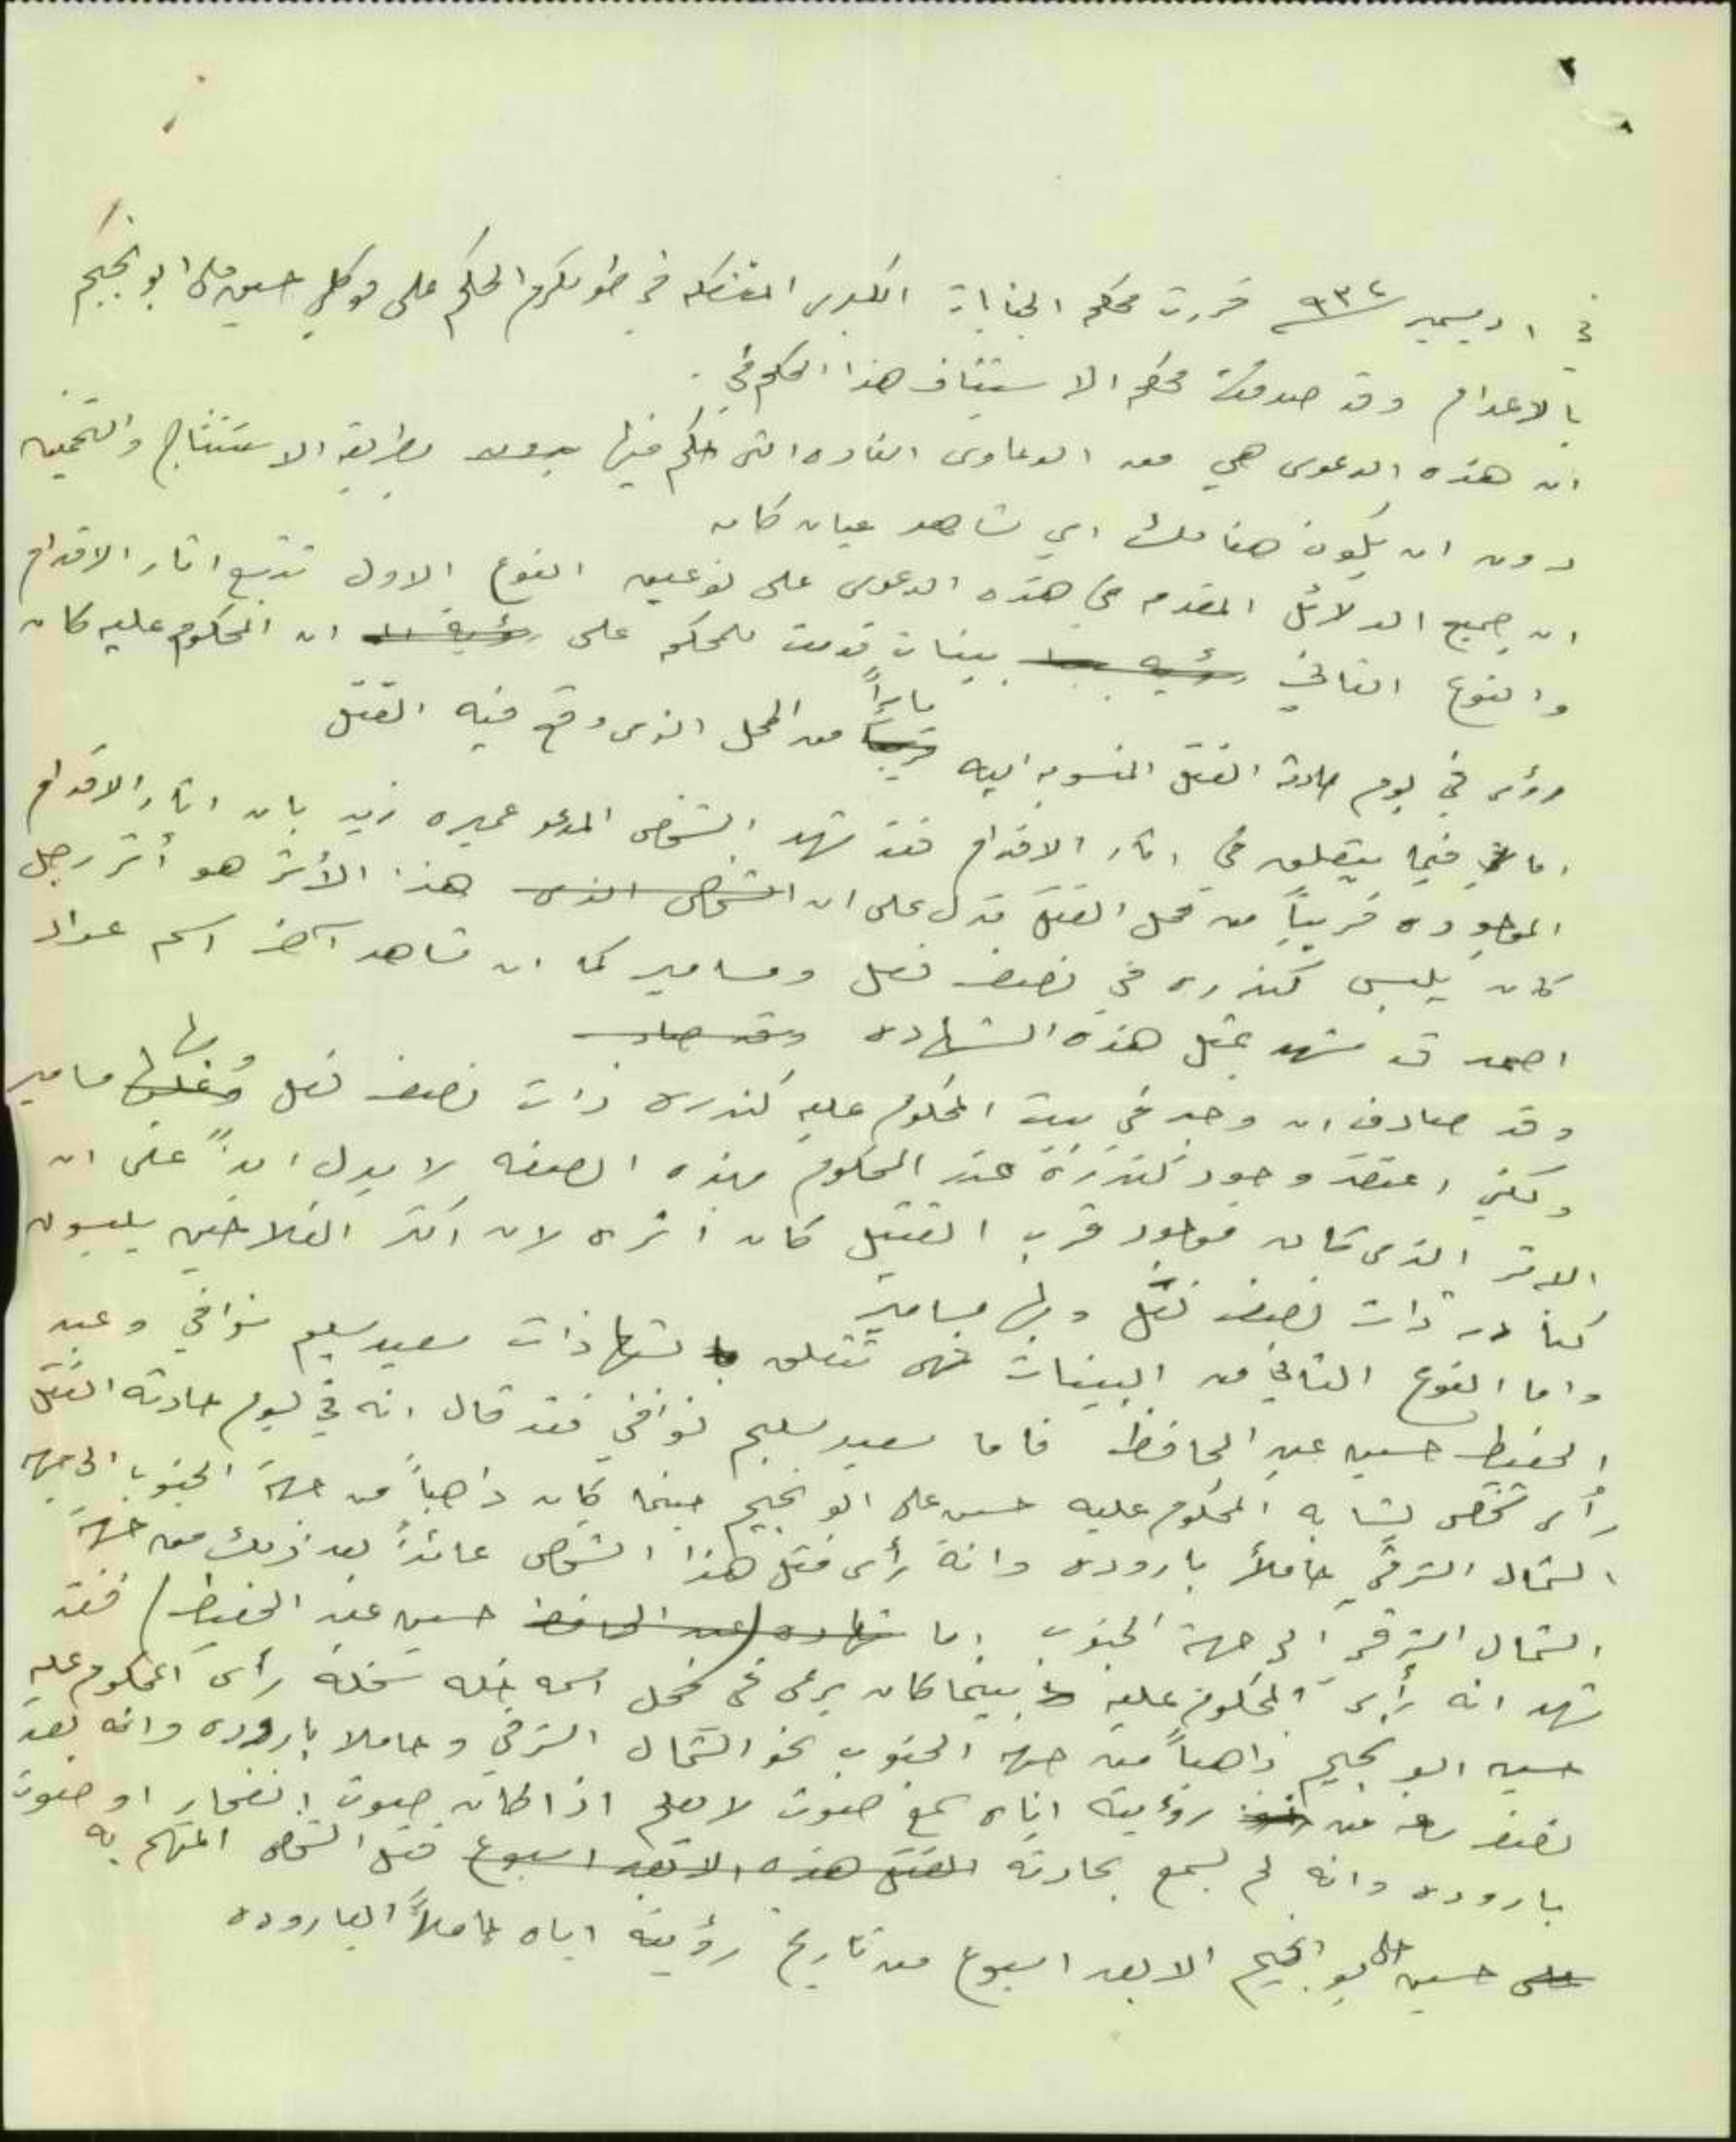 في ١ ديسمبر ٩٣٢ قررت محكمة الجنايات الكبرى المنعقدة في طولكرم الحكم على موكلي حسين علي ابو نجيم
بالاعدام وقد صدقت محكمة الاستئناف هذا الحكم
ان هذه الدعوى هي من الدعاوى النادره التي حكم فيها بطريقة الاستنتاج والتخمين
دون ان يكون هنا لك اي شاهد عيان كان
ان جميع الدلائل المقدمه في هذه الدعوى على نوعين النوع الاول تتبع اثار الاقدام
والنوع الثاني بينات قدمت للمحكمه على ان المحكوم عليه كان
رؤى في يوم حادثة القتل المنسوبه اليه ماراً من المحل الذى وقع فيه القتل
اما فيما يتعلق في اثار الاقدام فقد شهد الشخص المدعو عميره زيد بان اثار الاقدام
الموجوده قريباً من محل القتل تدل على ان هذا الأثر هو أثر رجل
كان يلبس كندره في نصف نعل ومسامير كما ان شاهد آخر اسمه عواد
احمد قد شهد بمثل هذه الشهاده
وقد صادف ان وجد في بيت المحكوم عليه كندره ذات نصف نعل وبها مسامير
ولكني اعتقد وجود كندرة عند المحكوم بهذه الصفه لا يدل ابداً على ان
الاثر الذى كان موجود قرب القتيل كان اثره لان اكثر الفلاحين يلبسون
كنادر ذات نصف نعل وبها مسامير
واما النوع الثاني من البينات فهى تتعلق بشهاذات سعيد سليم نوافي وعبد
الحفيظ حسين عبد الحافظ فاما سعيد سليم نوافي فقد قال انه في يوم حادثه القتل
رأى شخص يشابه المحكوم عليه حسن على ابو نجيم حينما كان ذاهباً من جهة الجنوب الى جهة
الشمال الشرقي حاملاً باروده وانه رأى مثل هذا الشخص عائداً بعد ذلك من جهة
الشمال الشرقي الى جهة الجنوب اما حسين عبد الحفيظ) فقد
شهد انه رأى المحكوم عليه بينما كان يرعى في محل اسمه خلة رأى المحكوم عليه
حسين ابو نجيم ذاهباً من جهة الجنوب نحو الشمال الشرقي وحاملا باروده وانه بعد
نصف ساعه من رؤيته اياه سمع صوت لا يعلم اذا كان صوت انفجار او صوت
باروده وانه لم يسمع بحادثه قتل الشخص المتهم به
حسين علي ابو نجيم الا بعد اسبوع من تاريخ رؤيته اياه حاملاً الباروده